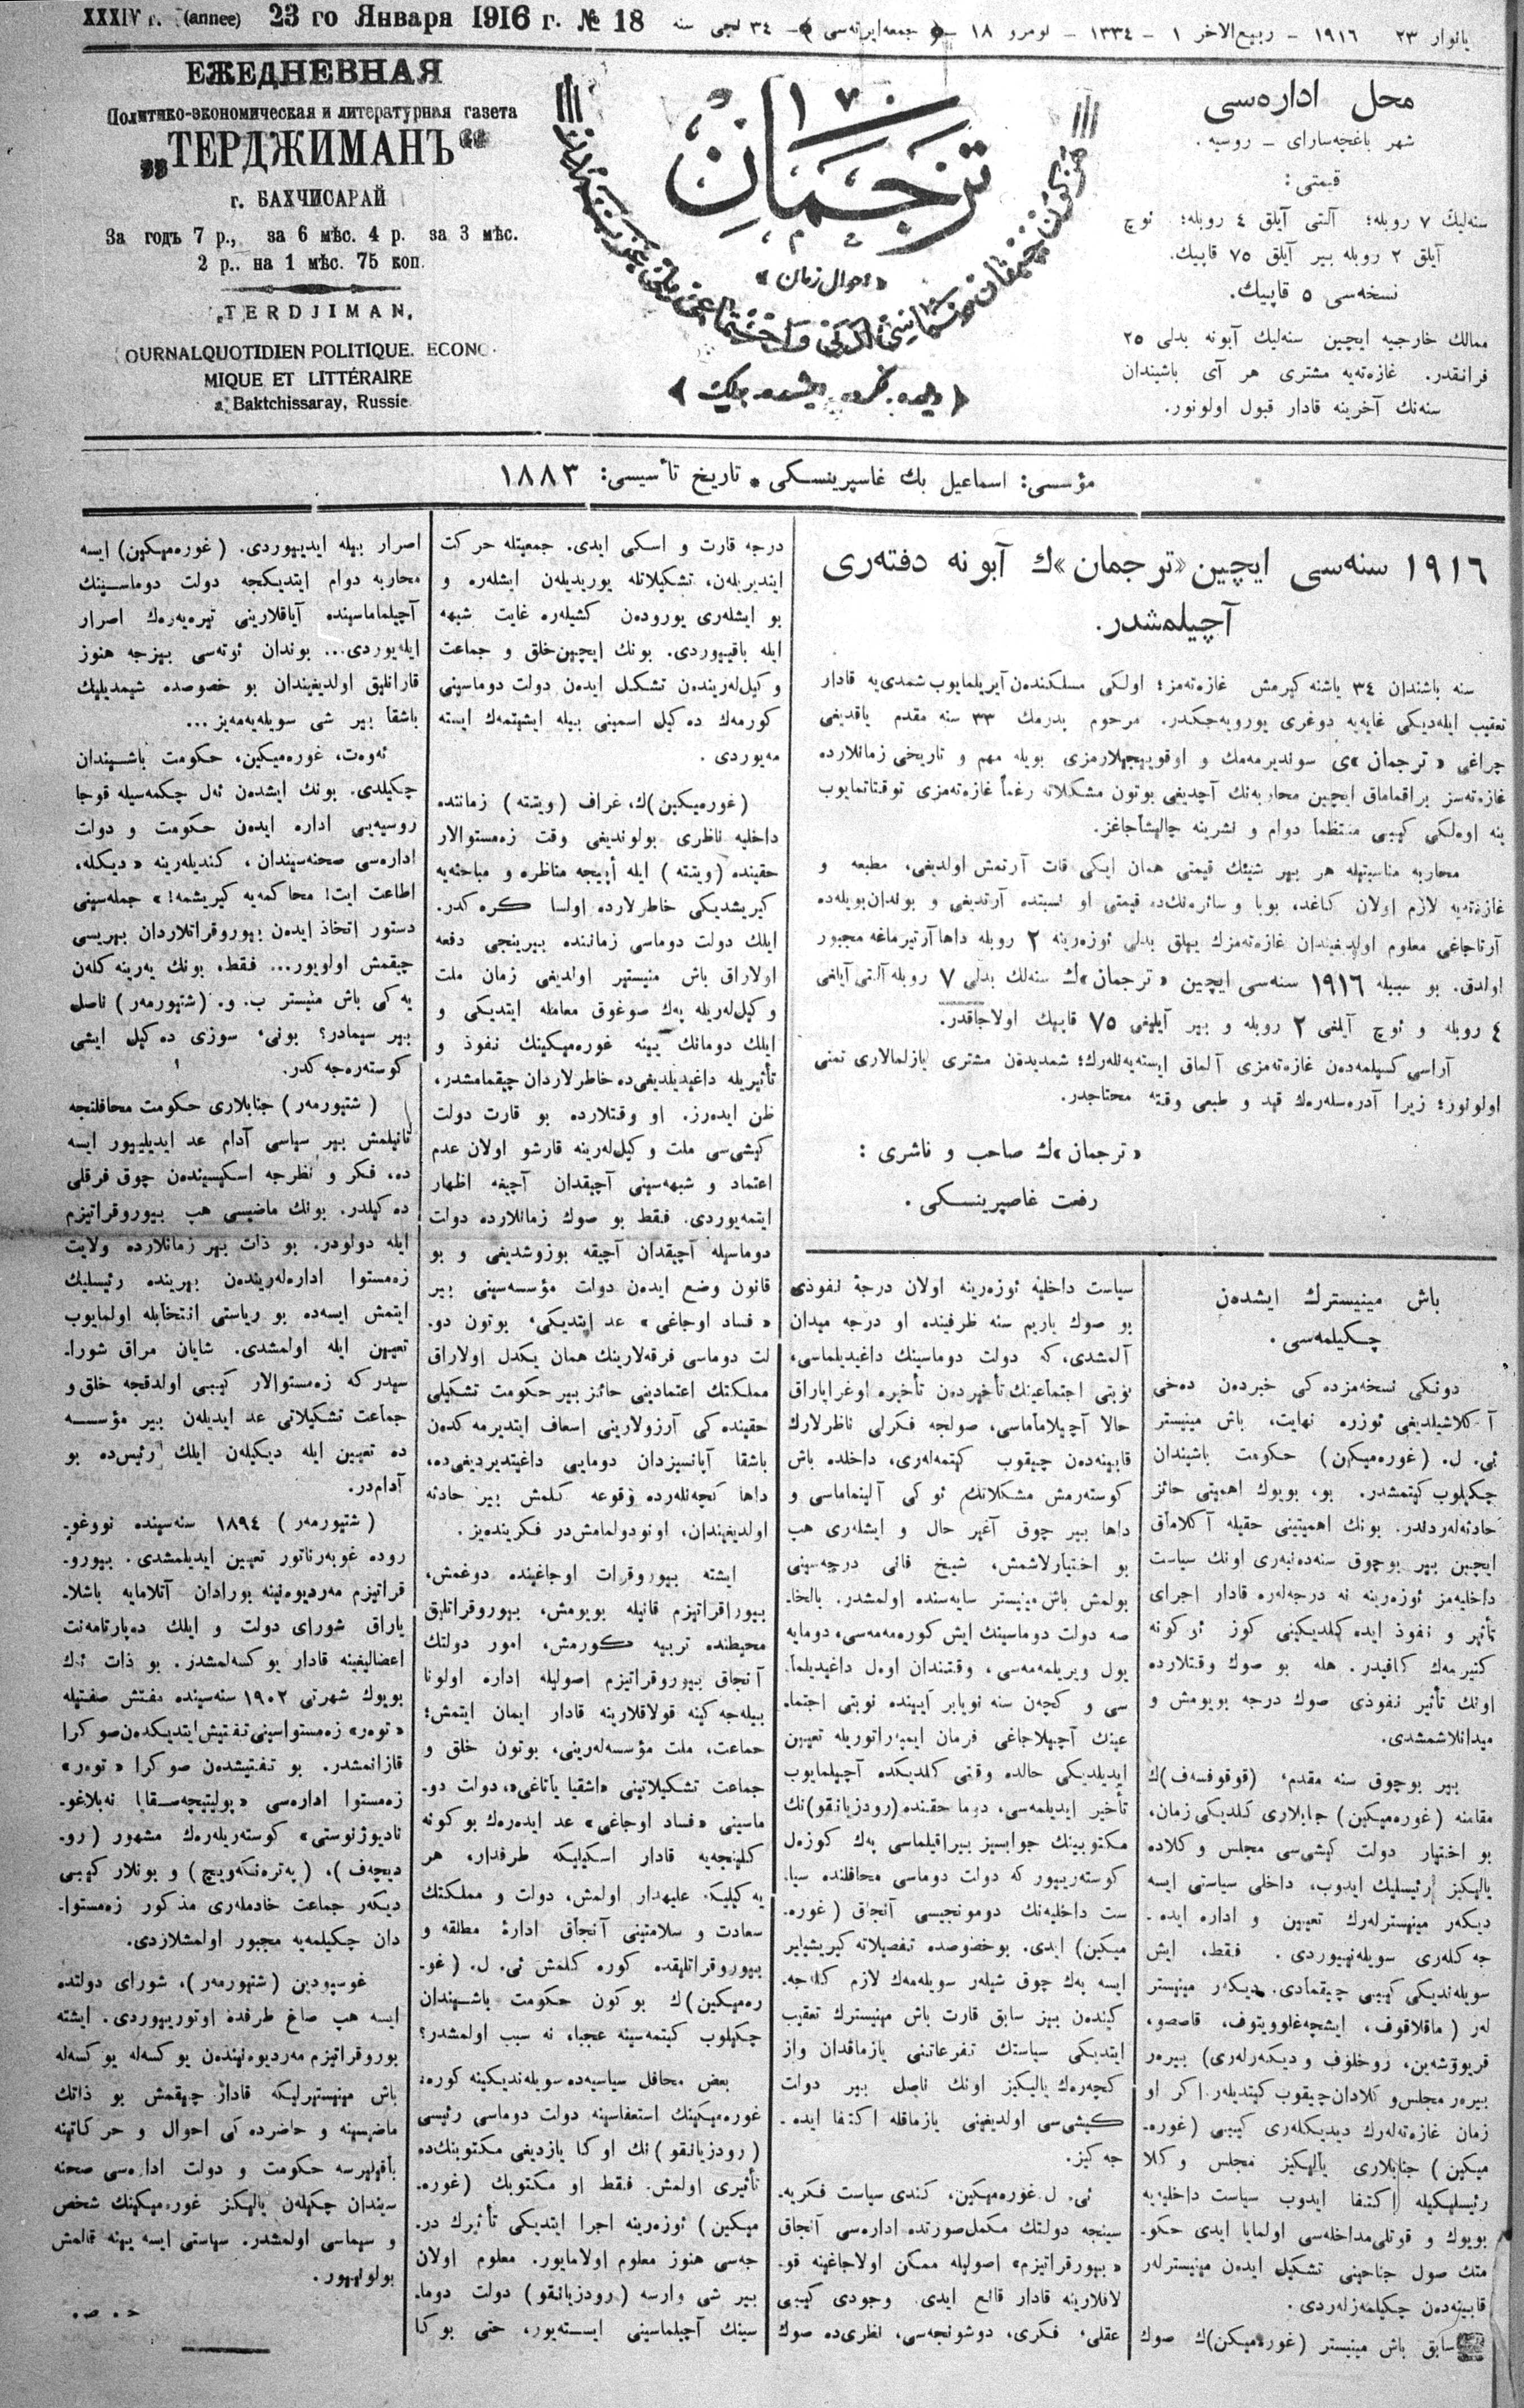 XXXIV г. (annee) 23 го Января 1916 г. № 18
يانوار ٢٣ ١٩١٦ – ربيع الاخر ١ – ١٣٣٤ – نومرو ١٨ – جمعه ايرته‌سی – ٣٤ لجی سنه
ЕЖЕДНЕВНАЯ
Политико-экономическая и литературная газета
„ТЕРДЖИМАНЪ“
г. БАХЧИСАРАЙ
За годъ 7 р., за 6 мѣс. 4 р. за 3 мѣс.
2 р.. на 1 мѣс. 75 коп.
„TERDJIMAN„
OURNALQUOTIDIEN POLITIQUE. ECONO-
MIQUE ET LITTÉRAIRE
a Baktchissaray, Russie
ترجمان
« احوال زمان »
« ديلده، فكرده، ايشده بيرليك »
محل اداره‌سی
شهر باغچه‌سارای – روسيه .
قيمتی :
سنه‌ليك ٧ روبله؛ آلتی آيلق ٤ روبله؛ ئوچ
آيلق ٢ روبله بير آيلق ٧٥ قاپيك.
نسخه‌سی ٥ قاپيك.
ممالك خارجيه ايچين سنه‌ليك آبونه بدلی ٢٥
فرانقدر. غازه‌ته‌يه مشتری هر آی باشيندان
سنه‌نك آخرينه قادار قبول اولونور.
مؤسسی: اسماعيل بك غاسپرينسكی * تاريخ تأسيسی: ١٨٨٣
١٩١٦ سنه‌سی ايچين «ترجمان»ك آبونه دفته‌ری
آچيلمشدر.
سنه باشندان ٣٤ ياشنه كيرمش غازه‌ته‌مز؛ اولكی مسلكندن آيريلمايوب شمدی‌يه قادار
تعقيب ايله‌ديكی غايه‌يه دوغری يورويه‌جكدر. مرحوم پدرمك ٣٣ سنه مقدم ياقديغی
چراغی «ترجمان»ی سونديرمه‌مك و اوقويیجيلارمزی بويله مهم و تاريخی زمانلارده
غازه‌ته‌سز براقماماق ايچين محاربه‌نك آچديغی بوتون مشكلاته رغماً غازه‌ته‌مزی توقتاتمايوب
ينه اوه‌لكی كيبی منتظماً دوام و نشرينه چاليشاجاغز.
محاربه مناسبتيله هر بير شيئك قيمتی همان ايكی قات آرتمش اولديغی، مطبعه و
غازه‌ته‌يه لازم اولان كاغد، بويا و سائره‌نك‌ده قيمتی او نسبتده آرتديغی و بوندان‌بويله‌ده
آرتاجاغی معلوم اولديغيندان غازه‌ته‌مزك ييلق بدلی ئوزه‌رينه ٢ روبله داها آرتيرماغه مجبور
اولدق. بو سببله ١٩١٦ سنه‌سی ايچين «ترجمان»ك سنه‌لك بدلی ٧ روبله آلتی آيلغی
٤ روبله و ئوچ آيلغی ٢ روبله و بير آيليغی ٧٥ قاپيك اولاجاقدر.
آراسی كسيلمه‌دن غازه‌ته‌مزی آلماق ايسته‌يه‌نله‌رك؛ شمديدن مشتری يازلمالاری تمنی
اولونور؛ زيرا آدره‌سله‌رك قيد و طبعی وقته محتاجدر.
«ترجمان»ك صاحب و ناشری :
رفعت غاصپرينسكی .
باش مينيسترك ايشدن
چكيلمه‌سی .
دونكی نسخه‌مزده‌كی خبردن ده‌خی
آكلاشيلديغی ئوزره نهايت، باش مينيستر
ئی. ل. (غوره‌ميكين) حكومت باشيندان
چكيلوب كيتمشدر. بو، بويوك اهميتی حائز
حادثه‌له‌ردندر. بونك اهميتينی حقيله آكلاماق
ايچين بير بوچوق سنه‌ده‌نبه‌ری اونك سياست
داخليه‌مز ئوزه‌رينه نه درجه‌له‌ره قادار اجرای
تأثير و نفوذ ايده كلديكينی كوز ئوكونه
كتيرمه‌ك كافيدر. هله بو صوك وقتلارده
اونك تأثير نفوذی صوك درجه بويومش و
ميدانلاشمشدی.
بير بوچوق سنه مقدم، (قوقوفسه‌ف)ك
مقامنه (غوره‌ميكين) جنابلاری كلديكی زمان،
بو اختيار دولت كيشی‌سی مجلس وكلاده
يالڭيز رئيسليك ايدوب، داخلی سياستی ايسه
ديكه‌ر مينيسترله‌رك تعيين و اداره ايده‌ـ
جه‌كله‌ری سويله‌نييوردی. فقط، ايش
سويله‌نديكی كيبی چيقمادی. ديكه‌ر مينيستر
له‌ر (ماقلاقوف، ايشچه‌غلوويتوف، قاصصو،
قريووشه‌ين، روخلوف و ديكه‌رله‌ری) بيره‌ر
بيره‌ر مجلس وكلادان چيقوب كيتديله‌ر. اكر او
زمان غازه‌ته‌له‌رك ديديكله‌ری كيبی (غوره‌ـ
ميكين) جنابلاری يالڭيز مجلس وكلا
رئيسليكيله اكتفا ايدوب سياست داخليه‌يه
بويوك و قوتلی مداخله‌سی اولمايا ايدی حكوـ
متك صول جناحينی تشكيل ايدن مينيسترله‌ر
قابينه‌دن چكيلمه‌زله‌ردی .
سابق باش مينيستر (غوره‌ميكن)ك صوك
سياست داخليه ئوزه‌رينه اولان درجهٔ نفوذی
بو صوك ياريم سنه ظرفينده او درجه ميدان
آلمشدی، كه دولت دوماسينك داغيديلماسی،
نوبتی اجتماعينك تأخيردن تأخيره اوغراياراق
حالا آچيلاماماسی، صولجه فكرلی ناظرلارك
قابينه‌دن چيقوب كيتمه‌له‌ری، داخلده باش
كوسته‌رمش مشكلاتك ئوكی آلينماماسی و
داها بير چوق آغير حال و ايشله‌ری هب
بو اختيارلاشمش، شيخ فانی درجه‌سينی
بولمش باش مينيستر سايه‌سنده اولمشدر. بالخاـ
صه دولت دوماسينك ايش كوره‌مه‌مه‌سی، دومايه
يول ويريلمه‌مه‌سی، وقتندان اوه‌ل داغيديلماـ
سی و كچه‌ن سنه نويابر آيينده نوبتی اجتماـ
عينك آچيلاجاغی فرمان ايمپه‌راتوريله تعيين
ايديلديكی حالده وقتی كلديكده آچيلمايوب
تأخير ايديلمه‌سی، دوما حقنده (رودزيانقو)نك
مكتوبينك جوابسيز بيراقيلماسی پك كوزه‌ل
كوسته‌رييور كه دولت دوماسی محافلنده سياـ
ست داخليه‌نك دومونجيسی آنجاق (غوره‌ـ
ميكين) ايدی. بو خصوصده تفصيلاته كيريشيلير
ايسه پك چوق شيله‌ر سويله‌مه‌ك لازم كله‌جه‌ـ
كيندن بيز سابق قارت باش مينيسترك تعقيب
ايتديكی سياستك تفرعاتنی يازماقدان واز
كچه‌رك يالڭيز اونك ناصل بير دولت
كيشی‌سی اولديغينی يازماقله اكتفا ايده‌ـ
جه‌كيز.
ئی. ل. غوره‌ميكين، كندی سياست فكريه‌ـ
سينجه دولتك مكمل صورتده اداره‌سی آنجاق
«بيوروقراتيزم» اصوليله ممكن اولاجاغينه قوـ
لاقلارينه قادار قانع ايدی. وجودی كيبی
عقلی، فكری، دوشونجه‌سی، نظری‌ده صوك
درجه قارت و اسكی ايدی. جمعيتله حركت
ايندیريله‌ن، تشكيلاتله يوريديله‌ن ايشله‌ره و
بو ايشله‌ری يورودن كشيله‌ره غايت شبهه
ايله باقييوردی. بونك ايچين خلق و جماعت
وكيل‌له‌ريندن تشكل ايدن دولت دوماسينی
كورمه‌ك ده‌كيل اسمينی بيله ايشيتمه‌ك ايسته
مه‌يوردی .
(غوره‌ميكين)ك، غراف (ويتته) زماننده
داخليه ناظری بولونديغی وقت زه‌مستوالار
حقينده (ويتته) ايله أپيجه مناظره و مباحثه‌يه
كيريشديكی خاطرلارده اولسا كره‌كدر.
ايلك دولت دوماسی زماننده بيرينجی دفعه
اولاراق باش منيستير اولديغی زمان ملت
وكيل‌له‌ريله پك صوغوق معامله ايتديكی و
ايلك دومانك يينه غوره‌ميكينك نفوذ و
تأثيريله داغيديلديغی‌ده خاطرلاردان چيقمامشدر،
ظن ايده‌رز. او وقتلارده بو قارت دولت
كيشی‌سی ملت وكيل‌له‌رينه قارشو اولان عدم
اعتماد و شبهه‌سينی آچيقدان آچيغه اظهار
ايتمه‌يوردی. فقط بو صوك زمانلارده دولت
دوماسيله آچيقدان آچيقه بوزوشديغی و بو
قانون وضع ايدن دولت مؤسسه‌سينی بير
«فساد اوجاغی» عد ايتديكی، بوتون دوـ
لت دوماسی فرقه‌لارينك همان يكدل اولاراق
مملكتك اعتمادينی حائز بير حكومت تشكيلی
حقينده‌كی آرزولارينی اسعاف ايتديرمه‌كدن
باشقا آپانسيزدان دومايی داغيتديرديغی‌ده،
داها كچه‌نله‌رده وقوعه كلمش بير حادثه
اولديغيندان، اونودولمامش‌در فكرينده‌يز.
ايشته بيوروقرات اوجاغينده دوغمش،
بيوراقراتيزم قانيله بويومش، بيوروقراتليق
محيطنده تربيه كورمش، امور دولتك
آنجاق بيوروقراتيزم اصوليله اداره اولونا
بيله‌جه‌كينه قولاقلارينه قادار ايمان ايتمش؛
جماعت، ملت مؤسسه‌له‌رينی، بوتون خلق و
جماعت تشكيلاتينی «اشقيا ياتاغی»، دولت دوـ
ماسينی «فساد اوجاغی» عد ايده‌رك بوكونه
كلينجه‌يه قادار اسكيليكه طرفدار، هر
يه‌كيليكه عليهدار اولمش، دولت و مملكتك
سعادت و سلامتينی آنجاق ادارهٔ مطلقه و
بيوروقراتليقده كوره كلمش ئی. ل. (غوـ
ره‌ميكين)ك بوكون حكومت باشيندان
چكيلوب كيتمه‌سينه عجبا، نه سبب اولمشدر؟
بعض محافل سياسيه‌ده سويله‌نديكينه كوره؛
غوره‌ميكينك استعفاسينه دولت دوماسی رئيسی
(رودزيانقو)نك اوكا يازديغی مكتوبنك‌ده
تأثيری اولمش. فقط او مكتوبك (غوره‌ـ
ميكين) ئوزه‌رينه اجرا ايتديكی تأثيرك درـ
جه‌سی هنوز معلوم اولامايور. معلوم اولان
بير شی وارسه (رودزيانقو) دولت دوماـ
سينك آچيلماسينی ايسته‌يور، حتی بوكا
اصرار بيله ايدييوردی. (غوره‌ميكين) ايسه
محاربه دوام ايتديكجه دولت دوماسينك
آچيلماماسينده آياقلارينی تيره‌يه‌رك اصرار
ايله‌يوردی... بوندان ئوته‌سی بيزجه هنوز
قارانليق اولديغيندان بو خصوصده شيمديليك
باشقا بير شی سويله‌يه‌مه‌يز ...
ئه‌وه‌ت، غوره‌ميكين، حكومت باشيندان
چكيلدی. بونك ايشدن ئه‌ل چكمه‌سيله قوجا
روسيه‌يی اداره ايدن حكومت و دولت
اداره‌سی صحنه‌سيندان، كنديله‌رينه «ديكله،
اطاعت ايت! محاكمه‌يه كيريشمه!» جمله‌سينی
دستور اتخاذ ايدن بيوروقراتلاردان بيريسی
چيقمش اولويور... فقط، بونك يه‌رينه كله‌ن
يه‌كی باش منيستر ب. و. (شتيورمه‌ر) ناصل
بير سيمادر؟ بونی، سوزی ده‌كيل ايشی
كوسته‌ره‌جه‌كدر.
(شتيورمه‌ر) جنابلاری حكومت محافلنجه
تانيلمش بير سياسی آدام عد ايديلييور ايسه
ده، فكر و نظرجه اسكيسيندن چوق فرقلی
ده‌كيلدر. بونك ماضيسی هپ بيوروقراتيزم
ايله دولودر. بو ذات بير زمانلارده ولايت
زه‌مستوا اداره‌له‌ريندن بيرينده رئيسليك
ايتمش ايسه‌ده بو رياستی انتخابله اولمايوب
تعيين ايله اولمشدی. شايان مراق شوراـ
سيدر كه زه‌مستوالار كيبی اولدقجه خلق و
جماعت تشكيلاتی عد ايديله‌ن بير مؤسسه
ده تعيين ايله ديكيله‌ن ايلك رئيس‌ده بو
آدام‌در.
(شتيورمه‌ر) ١٨٩٤ سنه‌سينده نووغوـ
روده غوبه‌رناتور تعيين ايديلمشدی. بيوروـ
قراتيزم مه‌رديوه‌نينه بورادان آتلامايه باشلاـ
ياراق شورای دولت و ايلك ده‌پارتامه‌نت
اعضاليغينه قادار يوكسه‌لمشدر. بو ذات ئڭ
بويوك شهرتی ١٩٠٢ سنه‌سينده مفتش صفتيله
«توه‌ر» زه‌مستواسينی تفتيش ايتديكدن صوكرا
قازانمشدر. بو تفتيشدن صوكرا «توه‌ر»
زه‌مستوا اداره‌سی «پوليتيچه‌سقایا نه‌بلاغوـ
ناديوژنوستی» كوسته‌ريله‌رك مشهور (روـ
ديچه‌ف)، (په‌ترونكه‌ويچ) و بونلار كيبی
ديكه‌ر جماعت خادمله‌ری مذكور زه‌مستواـ
دان چكيلمه‌يه مجبور اولمشلاردی.
غوسپودين (شتيورمه‌ر)، شورای دولتده
ايسه هپ صاغ طرفده اوتورييوردی. ايشته
بوروقراتيزم مه‌رديوه‌نيندن يوكسه‌له يوكسه‌له
باش مينيستيرليكه قادار چيقمش بو ذاتك
ماضيسينه و حاضرده‌كی احوال و حركاتينه
باقيليرسه حكومت و دولت اداره‌سی صحنه
سيندان چكيله‌ن يالڭز غوره‌ميكينك شخص
و سيماسی اولمشدر. سياستی ايسه يينه قالمش
بولونييور.
ح. ص.